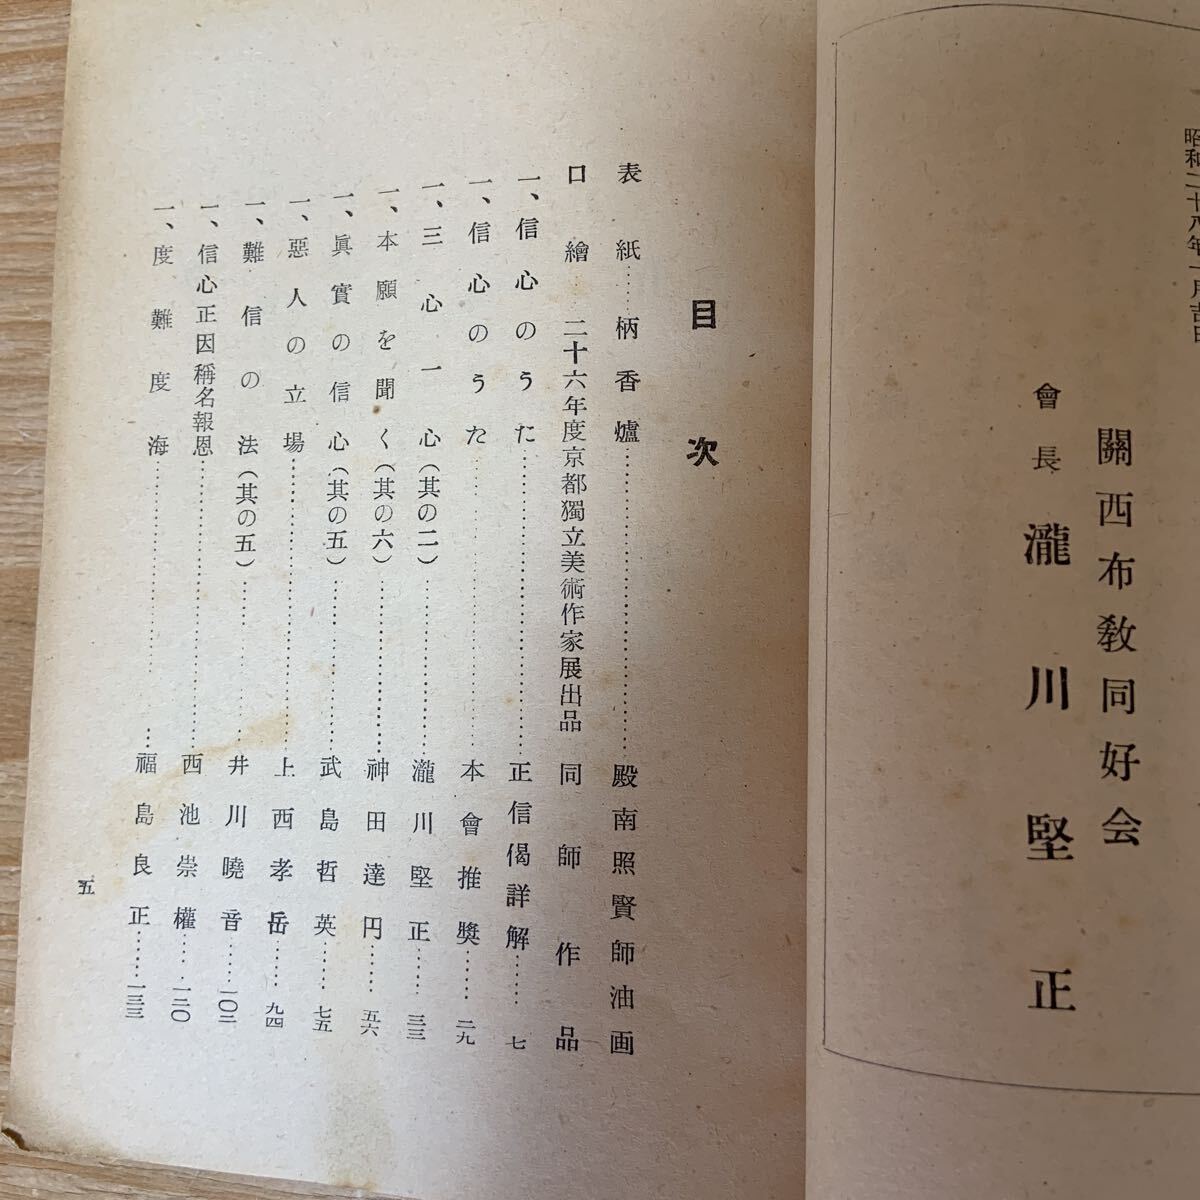 昭和二十八年一月吉日
關西布教同好会
會長 瀧川堅正
目次
表紙……柄香爐……………殿南照賢師油画
口繪 二十六年度京都獨立美術作家展出品 同師作品
一、信心のうた……………正信偈詳解……七
一、信心のうた……………本會推奬……二九
一、三心一心(其の二)……………瀧川堅正……三三
一、本願を聞く(其の六)……………神田達円……五六
一、眞實の信心(其の五)……………武島哲英……七五
一、惡人の立場……………上西孝岳……九四
一、難信の法(其の五)……………井川曉音……一〇二
一、信心正因稱名報恩……………西池崇權……一二〇
一、度難度海……………福島良正……一三三
五